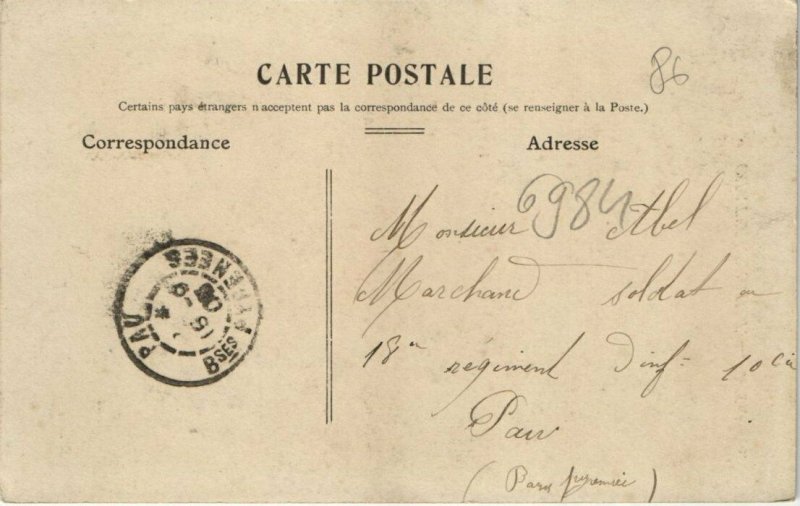 CARTE POSTALE
86
Certains pays étrangers n'acceptent pas la correspondance de ce côté (se renseigner à la Poste.)
Correspondance
Adresse
6984
Monsieur Abel
Marchand soldat au
18e régiment d'inf= 10 Cie
Pau
(Bases pyrenées)
PAU
BSES PYRENEES